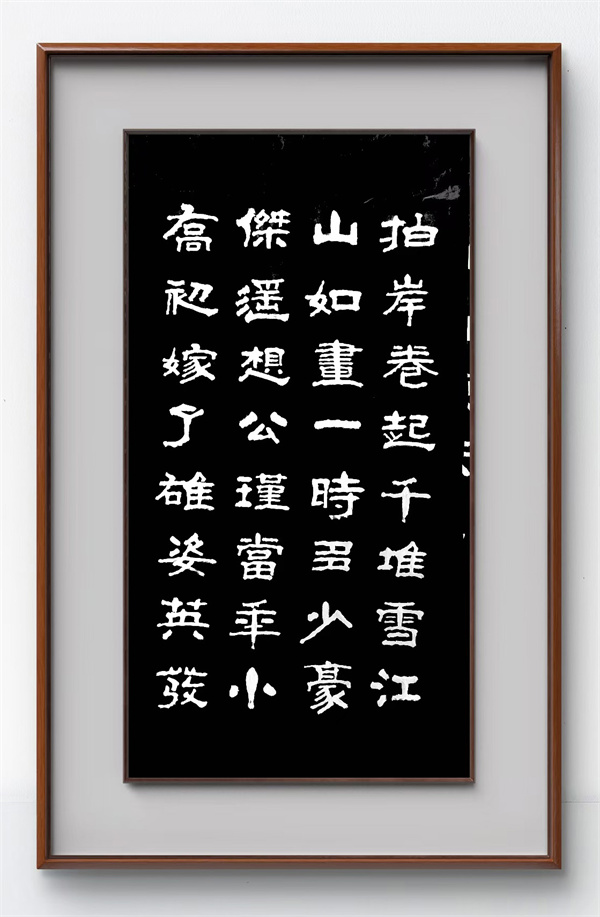 拍岸卷起千堆雪江
山如畫一時多少豪
傑遥想公瑾當年小
喬初嫁了雄姿英發